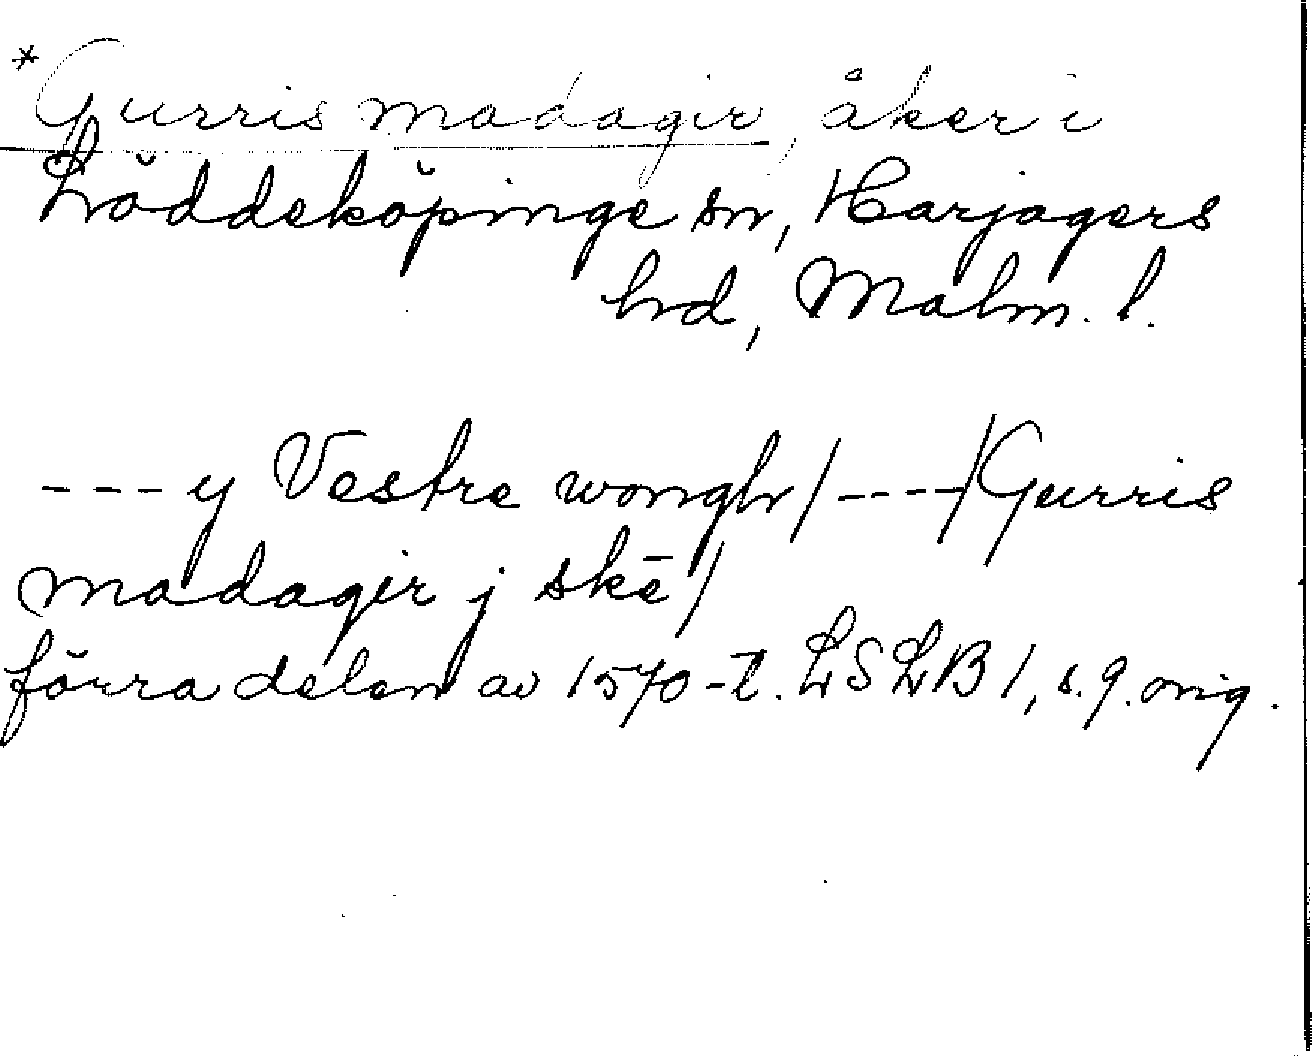 *Gurris madagir, åker i
Löddeköpinge sn, Harjagers
hd, Malm. l.
---y Vestre wongh/----/Gurris
madagir j skē/
förra delen av 1570-t. LSLB 1, s. 9. orig.